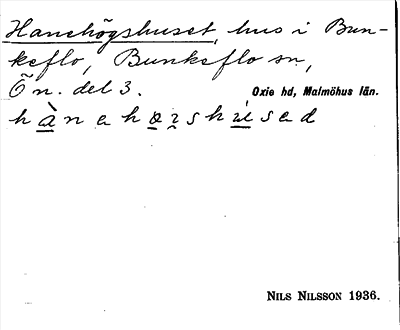 Hanehögshuset, hus i Bun-
keflo, Bunkeflo sn,
Ön. del 3. Oxie hd, Malmöhus län.
NILS NILSSON 1936.